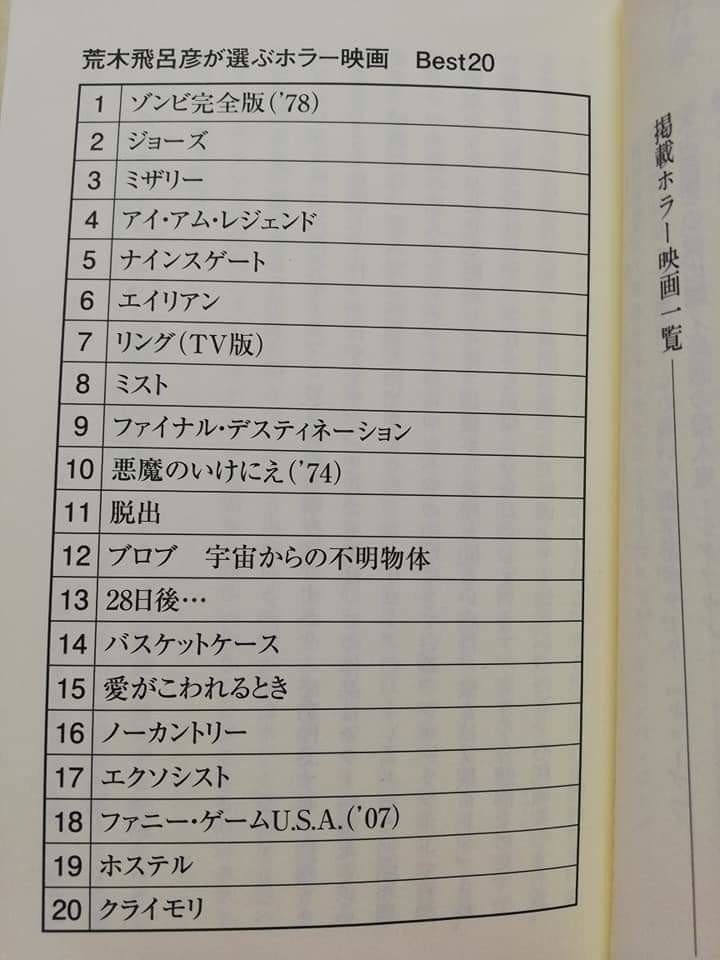 荒木飛呂彦が選ぶホラー映画　Best20
1 ゾンビ完全版('78)
2 ジョーズ
3 ミザリー
4 アイ・アム・レジェンド
5 ナインスゲート
6 エイリアン
7 リング(TV版)
8 ミスト
9 ファイナル・デスティネーション
10 悪魔のいけにえ('74)
11 脱出
12 ブロブ　宇宙からの不明物体
13 28日後…
14 バスケットケース
15 愛がこわれるとき
16 ノーカントリー
17 エクソシスト
18 ファニー・ゲームU.S.A.('07)
19 ホステル
20 クライモリ
掲載ホラー映画一覧